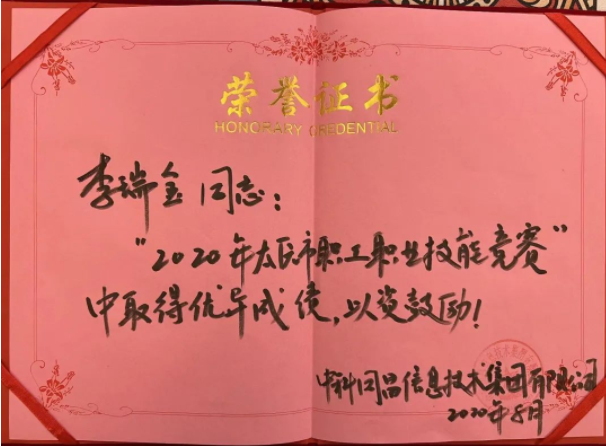 荣誉证书
HONORARY CREDENTIAL
李瑞金同志：
"2020年太原市职工职业技能竞赛"
中取得优异成绩，以资鼓励！
中科同昌信息技术集团有限公司
2020年8月